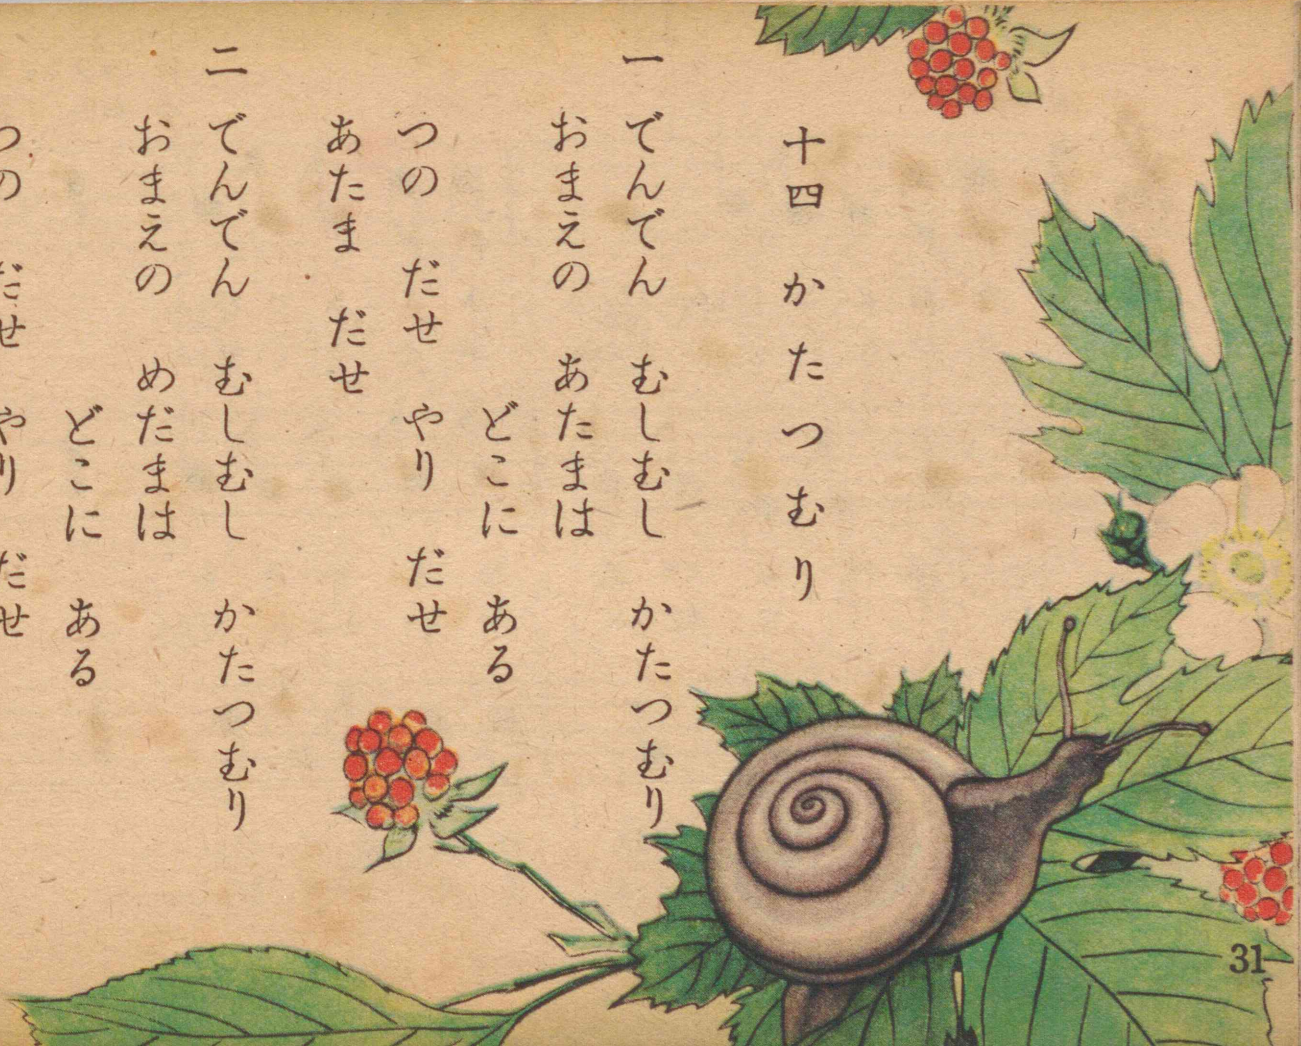 十四 かたつむり
一 でんでん むしむし かたつむり
おまえの あたまは
どこに ある
つの だせ やり だせ
あたま だせ
二 でんでん むしむし かたつむり
おまえの めだまは
どこに ある
つの だせ やり だせ
31